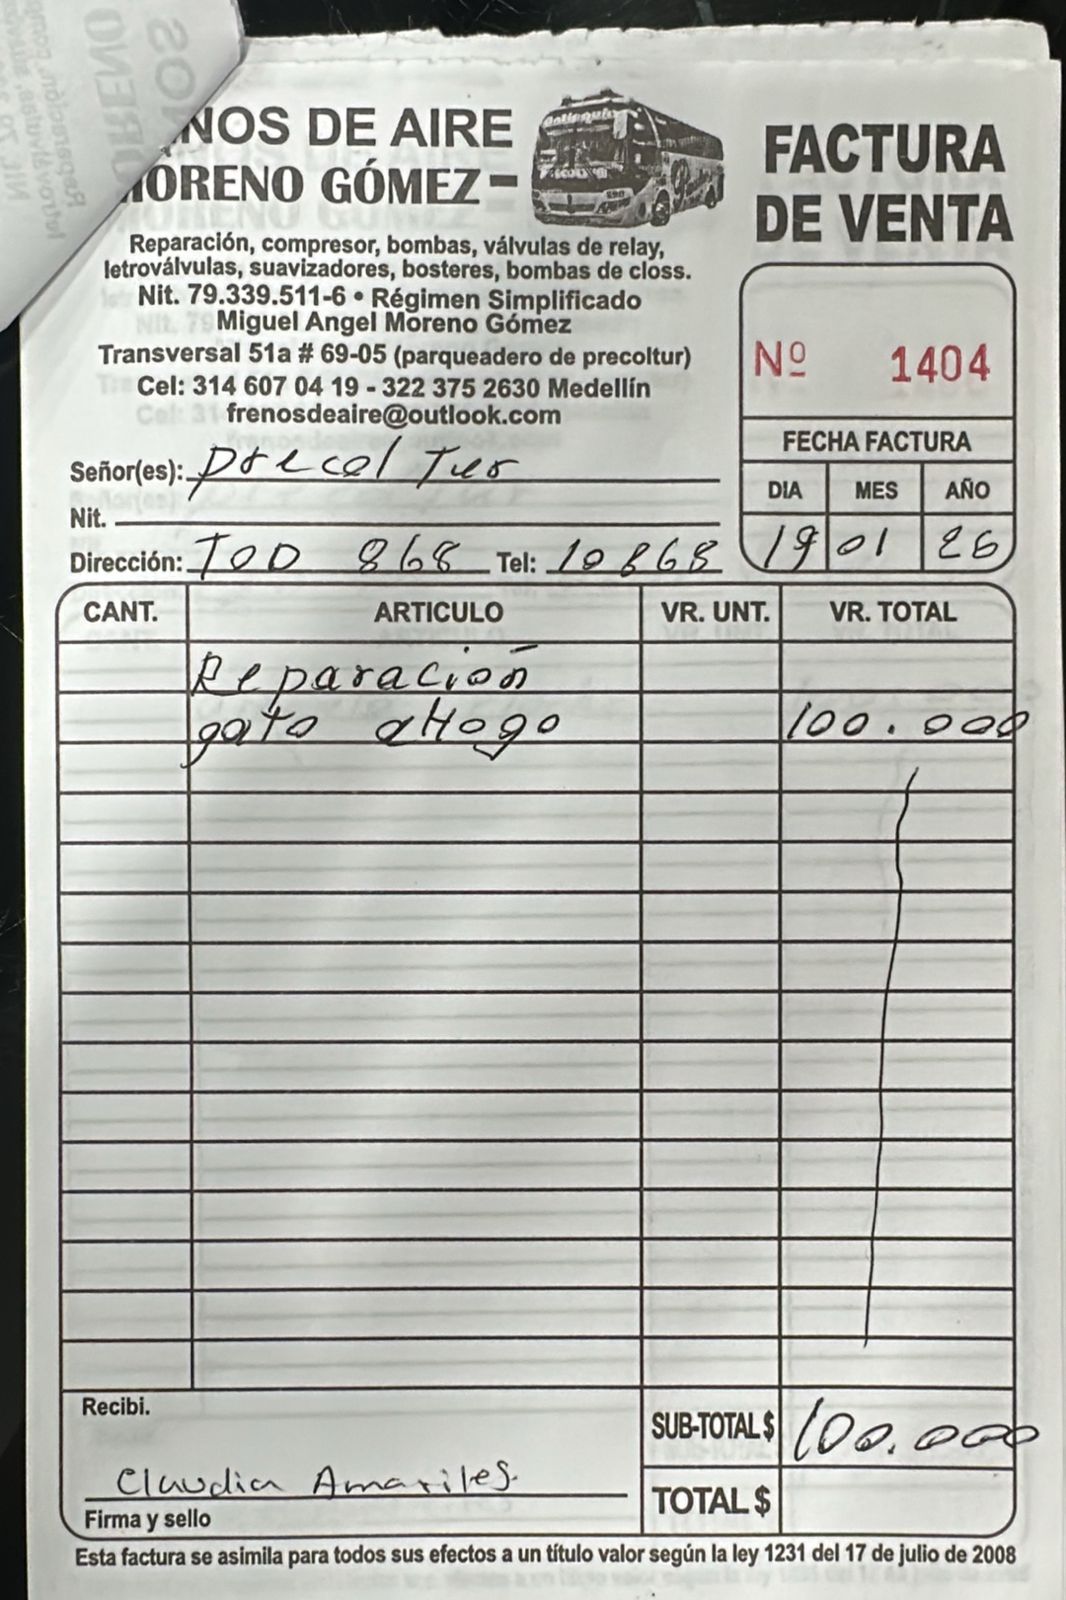 NOS DE AIRE
MORENO GÓMEZ-
Reparación, compresor, bombas, válvulas de relay,
letroválvulas, suavizadores, bosteres, bombas de closs.
Nit. 79.339.511-6 • Régimen Simplificado
Miguel Angel Moreno Gómez
Transversal 51a # 69-05 (parqueadero de precoltur)
Cel: 314 607 04 19 - 322 375 2630 Medellín
frenosdeaire@outlook.com
FACTURA
DE VENTA
Nº 1404
FECHA FACTURA
DIA MES AÑO
19 01 26
Señor(es): precol Tur
Nit.
Dirección: TOD 868 Tel: 10868
CANT. ARTICULO VR. UNT. VR. TOTAL
Reparación
gato aHogo 100.000
Recibi.
SUB-TOTAL $ 100.000
Claudia Amariles.
TOTAL $
Firma y sello
Esta factura se asimila para todos sus efectos a un título valor según la ley 1231 del 17 de julio de 2008